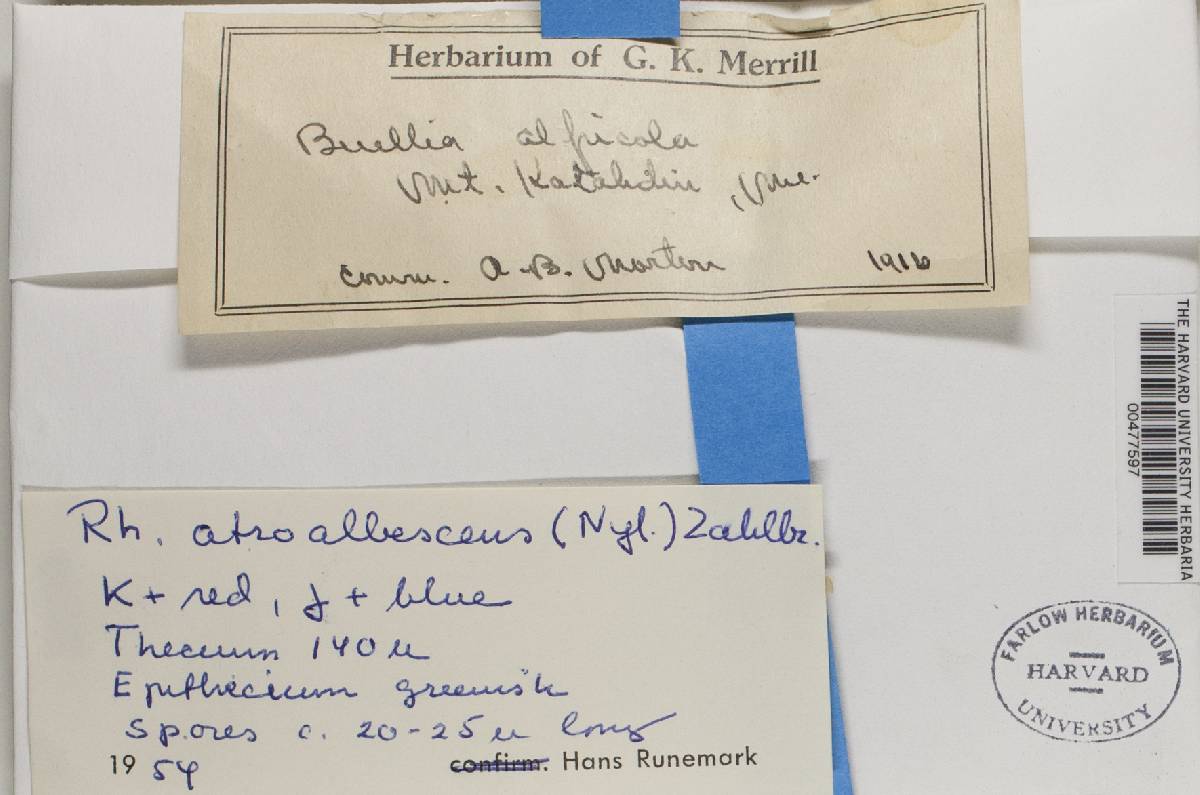 Herbarium of G. K. Merrill
Buellia alpicola
Mt. Katahdin, Me.
Comm. A. B. Norton
1916
THE HARVARD UNIVERSITY HERBARIA
00477597
Rh. atroalbescens (Nyl.) Zahlbr.
K + red, J + blue
Thecium 140 µ
Epithecium greenish
Spores c. 20-25 µ long
1954 confirm. Hans Runemark
FARLOW HERBARIUM
HARVARD
UNIVERSITY